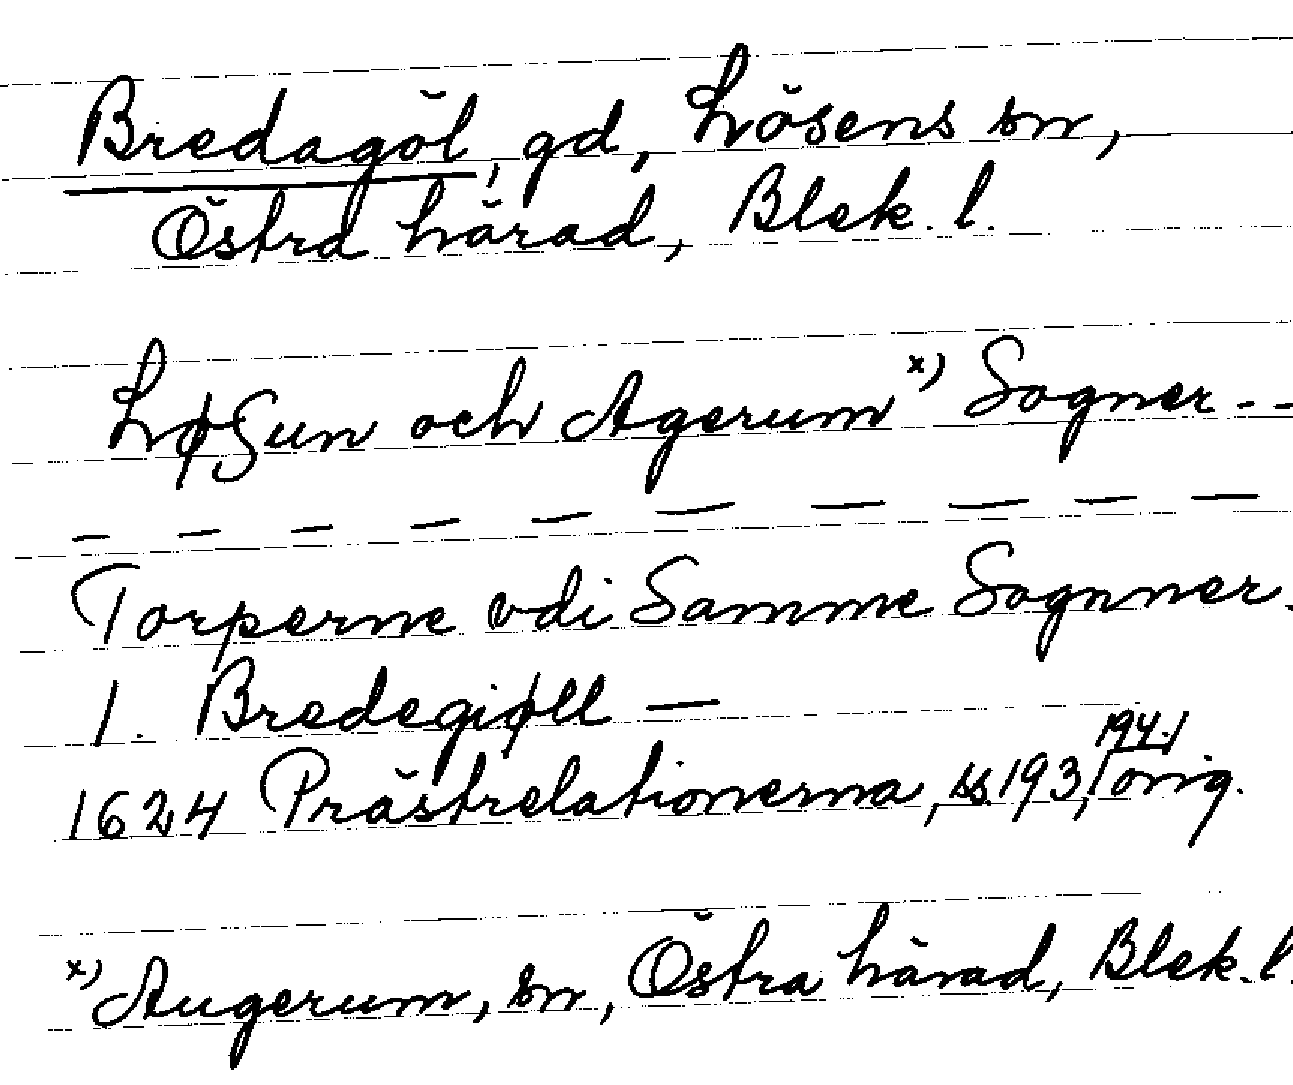 Bredagöl, gd, Lösens sn,
Östra härad, Blek. l.
LøSun och Agerum x) Sogner --
— — — — — — — — — —
Torperne vdi Samme Sognner.
1. Bredegiøll —
1624 Prästrelationerna, ss. 193, 194./ orig.
x) Augerum, sn, Östra härad, Blek. l.